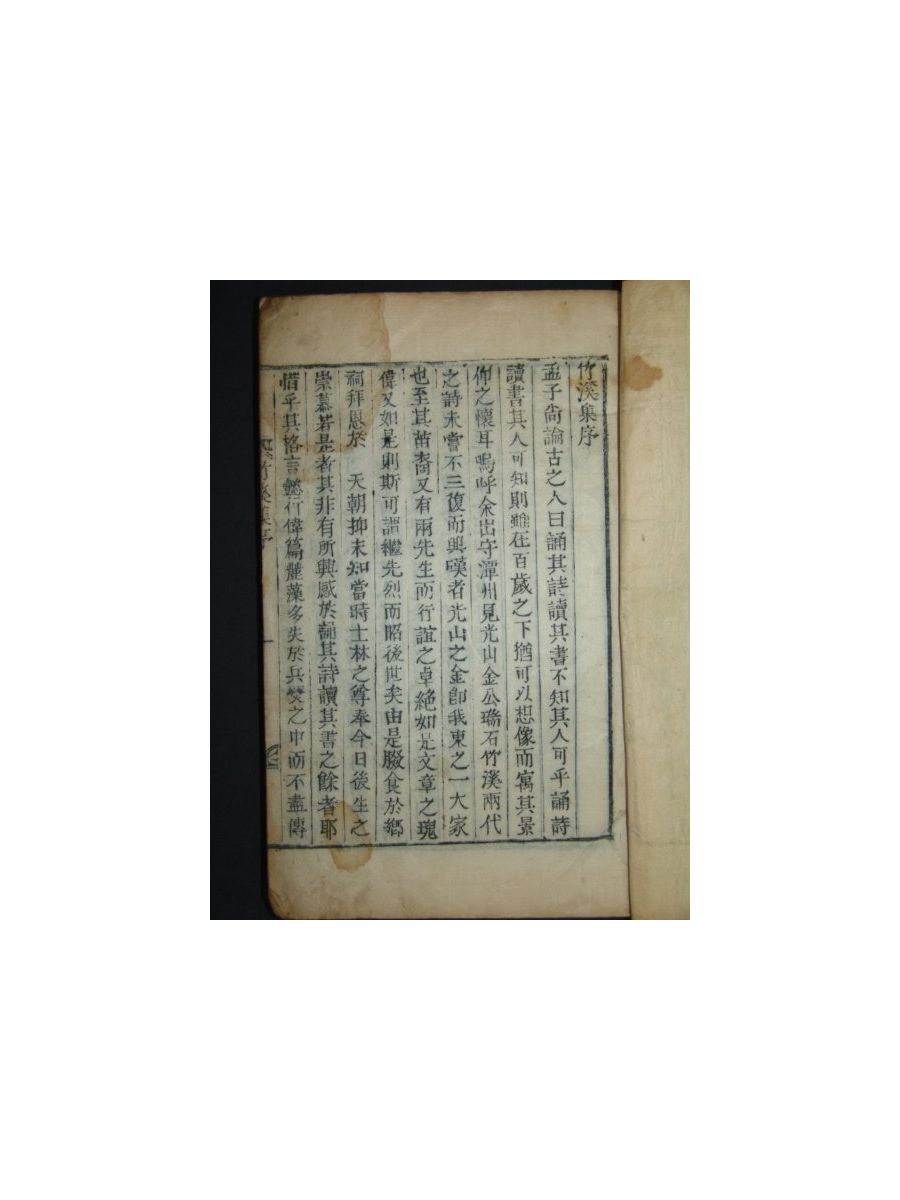 竹溪集序
孟子尙論古之人曰誦其詩讀其書不知其人可乎誦詩
讀書其人可知則雖在百歲之下猶可以想像而寓其景
仰之懷耳嗚呼余出守潭州見光山金公瑞石竹溪兩代
之詩未嘗不三復而興嘆者光山之金卽我東之一大家
也至其苗裔又有兩先生而行誼之卓絶如是文章之瑰
偉又如是則斯可謂繼先烈而昭後世矣由是腏食於鄉
祠拜恩於 天朝抑未知當時士林之尊奉今日後生之
崇慕若是者其非有所興感於誦其詩讀其書之餘者耶
惜乎其格言懿行偉篇麗藻多失於兵燹之中而不盡傳
竹溪集序
一